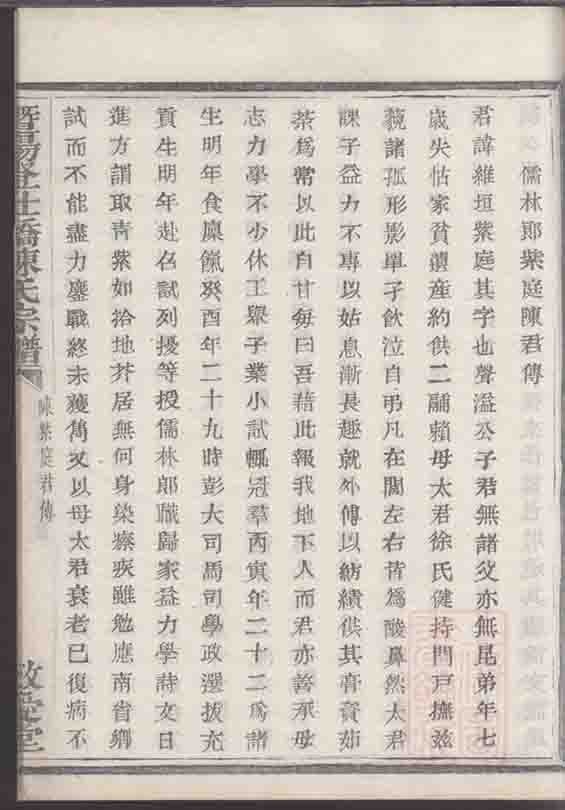 儒林郎紫庭陳君傳
君諱維垣紫庭其字也聲溢公子君無諸父亦無昆弟年七
歲失怙家貧薄產約供二鬴賴母太君徐氏健持門戸撫玆
藐諸孤形影單孑飲泣自弔凡在閭左右皆爲酸鼻然太君
課子益力不專以姑息漸長趣就外傅以紡績供其膏資茹
荼爲常以此自甘每曰吾藉此報我地下人而君亦善承母
志力學不少休王舉子業小試輒冠羣丙寅年二十二爲諸
生明年食廩餼癸酉年二十九時彭大司馬司學政選拔充
貢生明年赴召試列擾等授儒林郎職歸家益力學詩文日
進方謂取靑紫如拾地芥居無何身染瘵疾雖勉應南省鄉
試而不能盡力鏖戰終未獲雋又以母太君衰老已復病不
暨陽登仕橋陳氏宗譜
陳紫庭君傳
敬愛堂